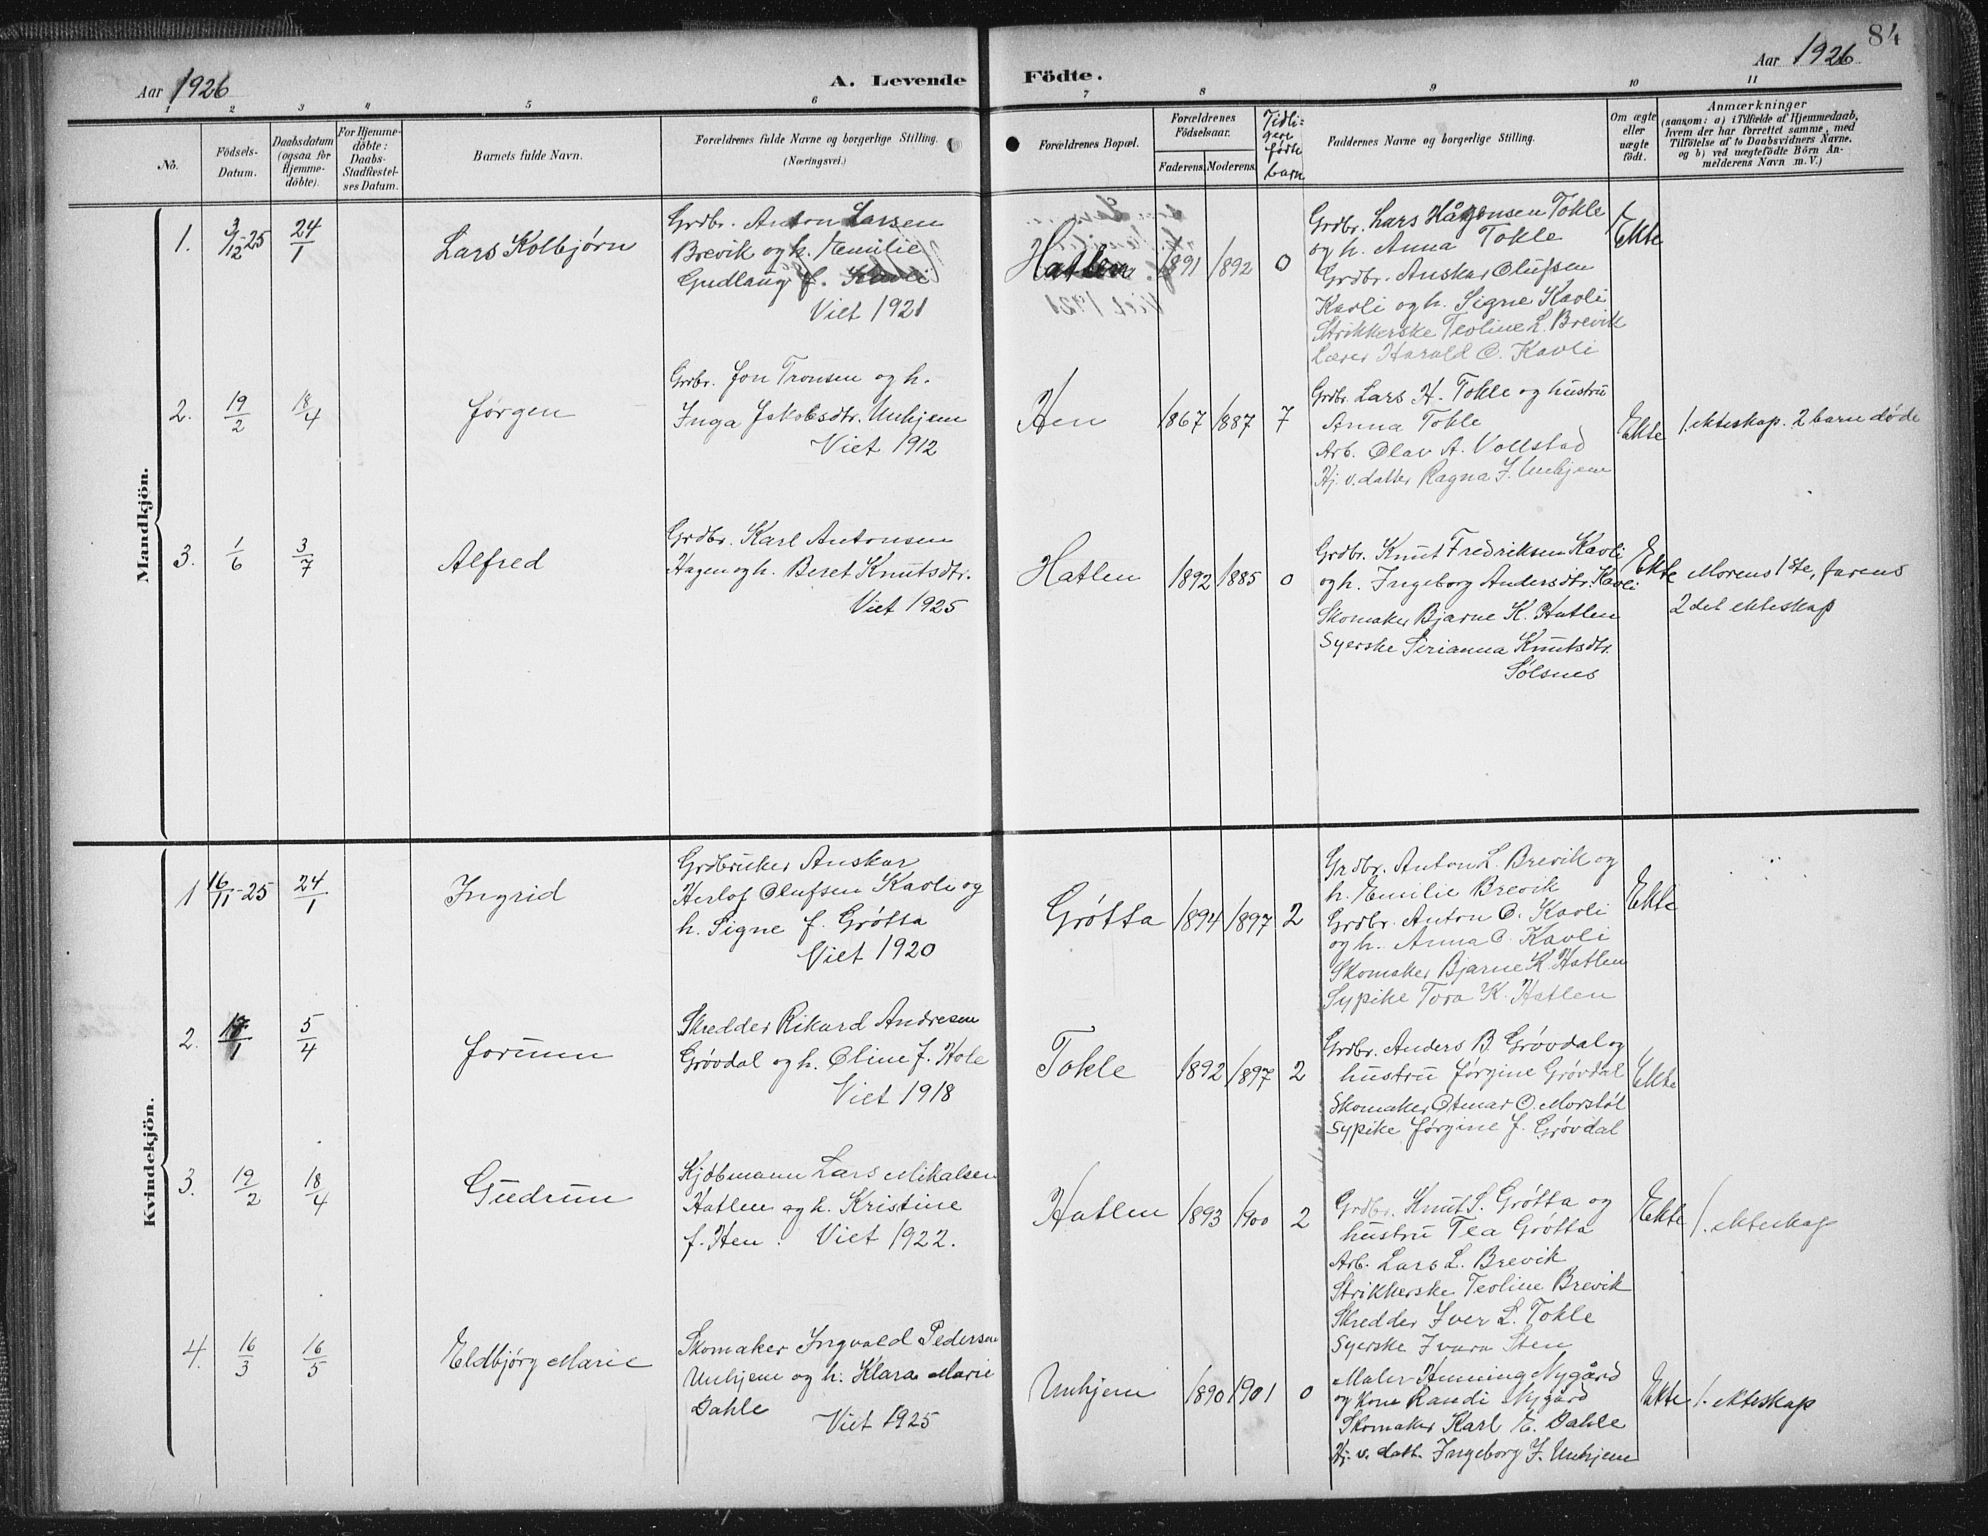 84
Aar 1926
A. Levende
Födte.
Aar 1926
1 2 3 4 5 6 7 8 9 10 11
No.
Födsels-
Datum.
Daabsdatum
(ogsaa for
Hjemme-
döbte).
For Hjemme-
döbte:
Daabs-
Stadfæstel-
ses Datum.
Barnets fulde Navn.
Forældrenes fulde Navne og borgerlige Stilling.
(Næringsvei.)
Forældrenes Bopæl.
Forældrenes
Födselsaar.
Faderens. Moderens.
Tidli-
gere
fødte
barn
Faddernes Navne og borgerlige Stilling.
Om ægte
eller
uægte
födt.
Anmærkninger
(saasom: a) i Tilfælde af Hjemmedaab,
hvem der har forrettet samme, med
Tilföielse af to Daabsvidners Navne,
og b) ved uægtefödte Börn An-
melderens Navn m. V.)
Mandkjön.
1. 3/12-25 24/1 Lars Kolbjørn
Grdbr. Anton Larsen
Brevik og h. Emilie
Gudlaug f. Kavli
Viet 1921
Hatlen 1891 1892 0
Grdbr. Lars Håkonsen Tokle
og h. Anna Tokle
Grdbr. Anskar Olufsen
Kavli og h. Signe Kavli
Strikkerske Teoline L. Brevik
Lærer Harald O. Kavli
Ekte
2. 19/2 18/4 Jørgen
Grdbr. Jon Tronsen og h.
Inga Jakobsdtr. Unhjem
Viet 1912
Hen 1867 1887 7
Grdbr. Lars H. Tokle og hustru
Anna Tokle
Arb. Olav A. Vollstad
Hj. v. datter Ragna J. Unhjem
Ekte 1. ekteskap. 2 barn døde
3. 1/6 3/7 Alfred
Grdbr. Karl Antonsen
Hagen og h. Beret Knutsdtr.
Viet 1925
Hatlen 1892 1885 0
Grdbr. Knut Fredriksen Kavli
og h. Ingeborg Andersdtr. Kavli
Skomaker Bjarne K. Hatlen
Syerske Serianna Knutsdtr.
Sølsnes
Ekte Morens 1ste, farens
2det ekteskap
Kvindekjön.
1 16/11-25 24/1 Ingrid
Grdbruker Anskar
Herlof Olufsen Kavli og
h. Signe f. Grøtta
Viet 1920
Grøtta 1894 1897 2
Grdbr. Anton L. Brevik og
h. Emilie Brevik
Grdbr. Anton O. Kavli
og h. Anna O. Kavli
Skomaker Bjarne K. Hatlen
Sypike Tora K. Hatlen
Ekte
2. /1 5/4 Jorunn
Skredder Rikard Andresen
Grøvdal og h. Oline f. Hole
Viet 1918
Tokle 1892 1897 2
Grdbr. Anders B. Grøvdal og
hustru Jørgine Grøvdal
Skomaker Otmar O. Morstøl
Sypike Jørgine J. Grøvdal
Ekte
3. 19/2 18/4 Gudrun
Kjøbmann Lars Mikalsen
Hatlen og h. Kristine
f. Hen. Viet 1922.
Hatlen 1893 1900 2
Grdbr. Knut S. Grøtta og
hustru Tea Grøtta
Arb. Lars L. Brevik
Strikkerske Teoline Brevik
Skredder Iver L. Tokle
Syerske Ivara Sten
Ekte 1. ekteskap
4. 16/3 16/5 Eldbjørg Marie
Skomaker Ingvald Pedersen
Unhjem og h. Klara Marie
Dahle
Viet 1925
Unhjem 1890 1901 0
Maler Henning Nygård
og kone Randi Nygård
Skomaker Karl E. Dahle
Hj. v. datt. Ingeborg J. Unhjem
Ekte 1. ekteskap